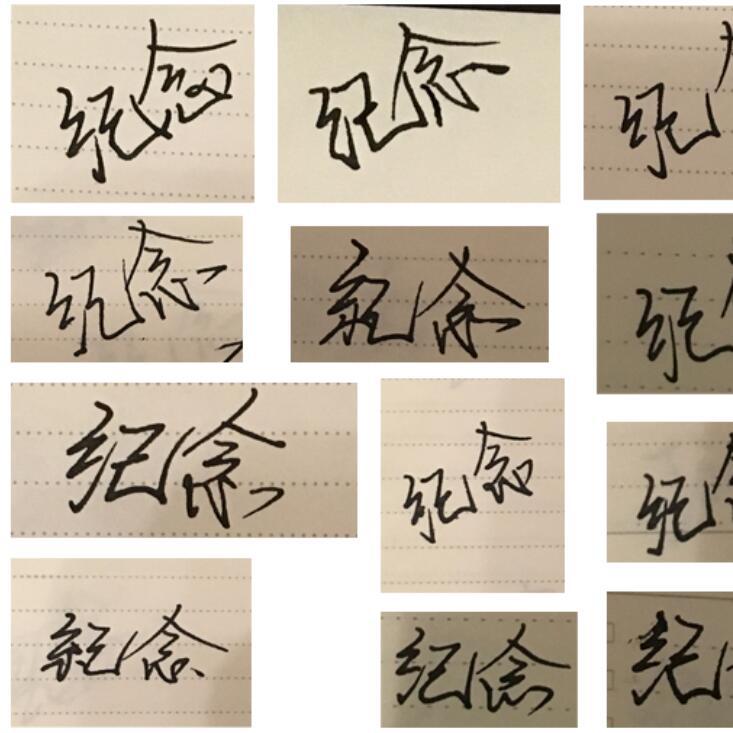 纪念 纪念 纪
纪念 纪念 纪
纪念 纪念 纪
纪念 纪念 纪